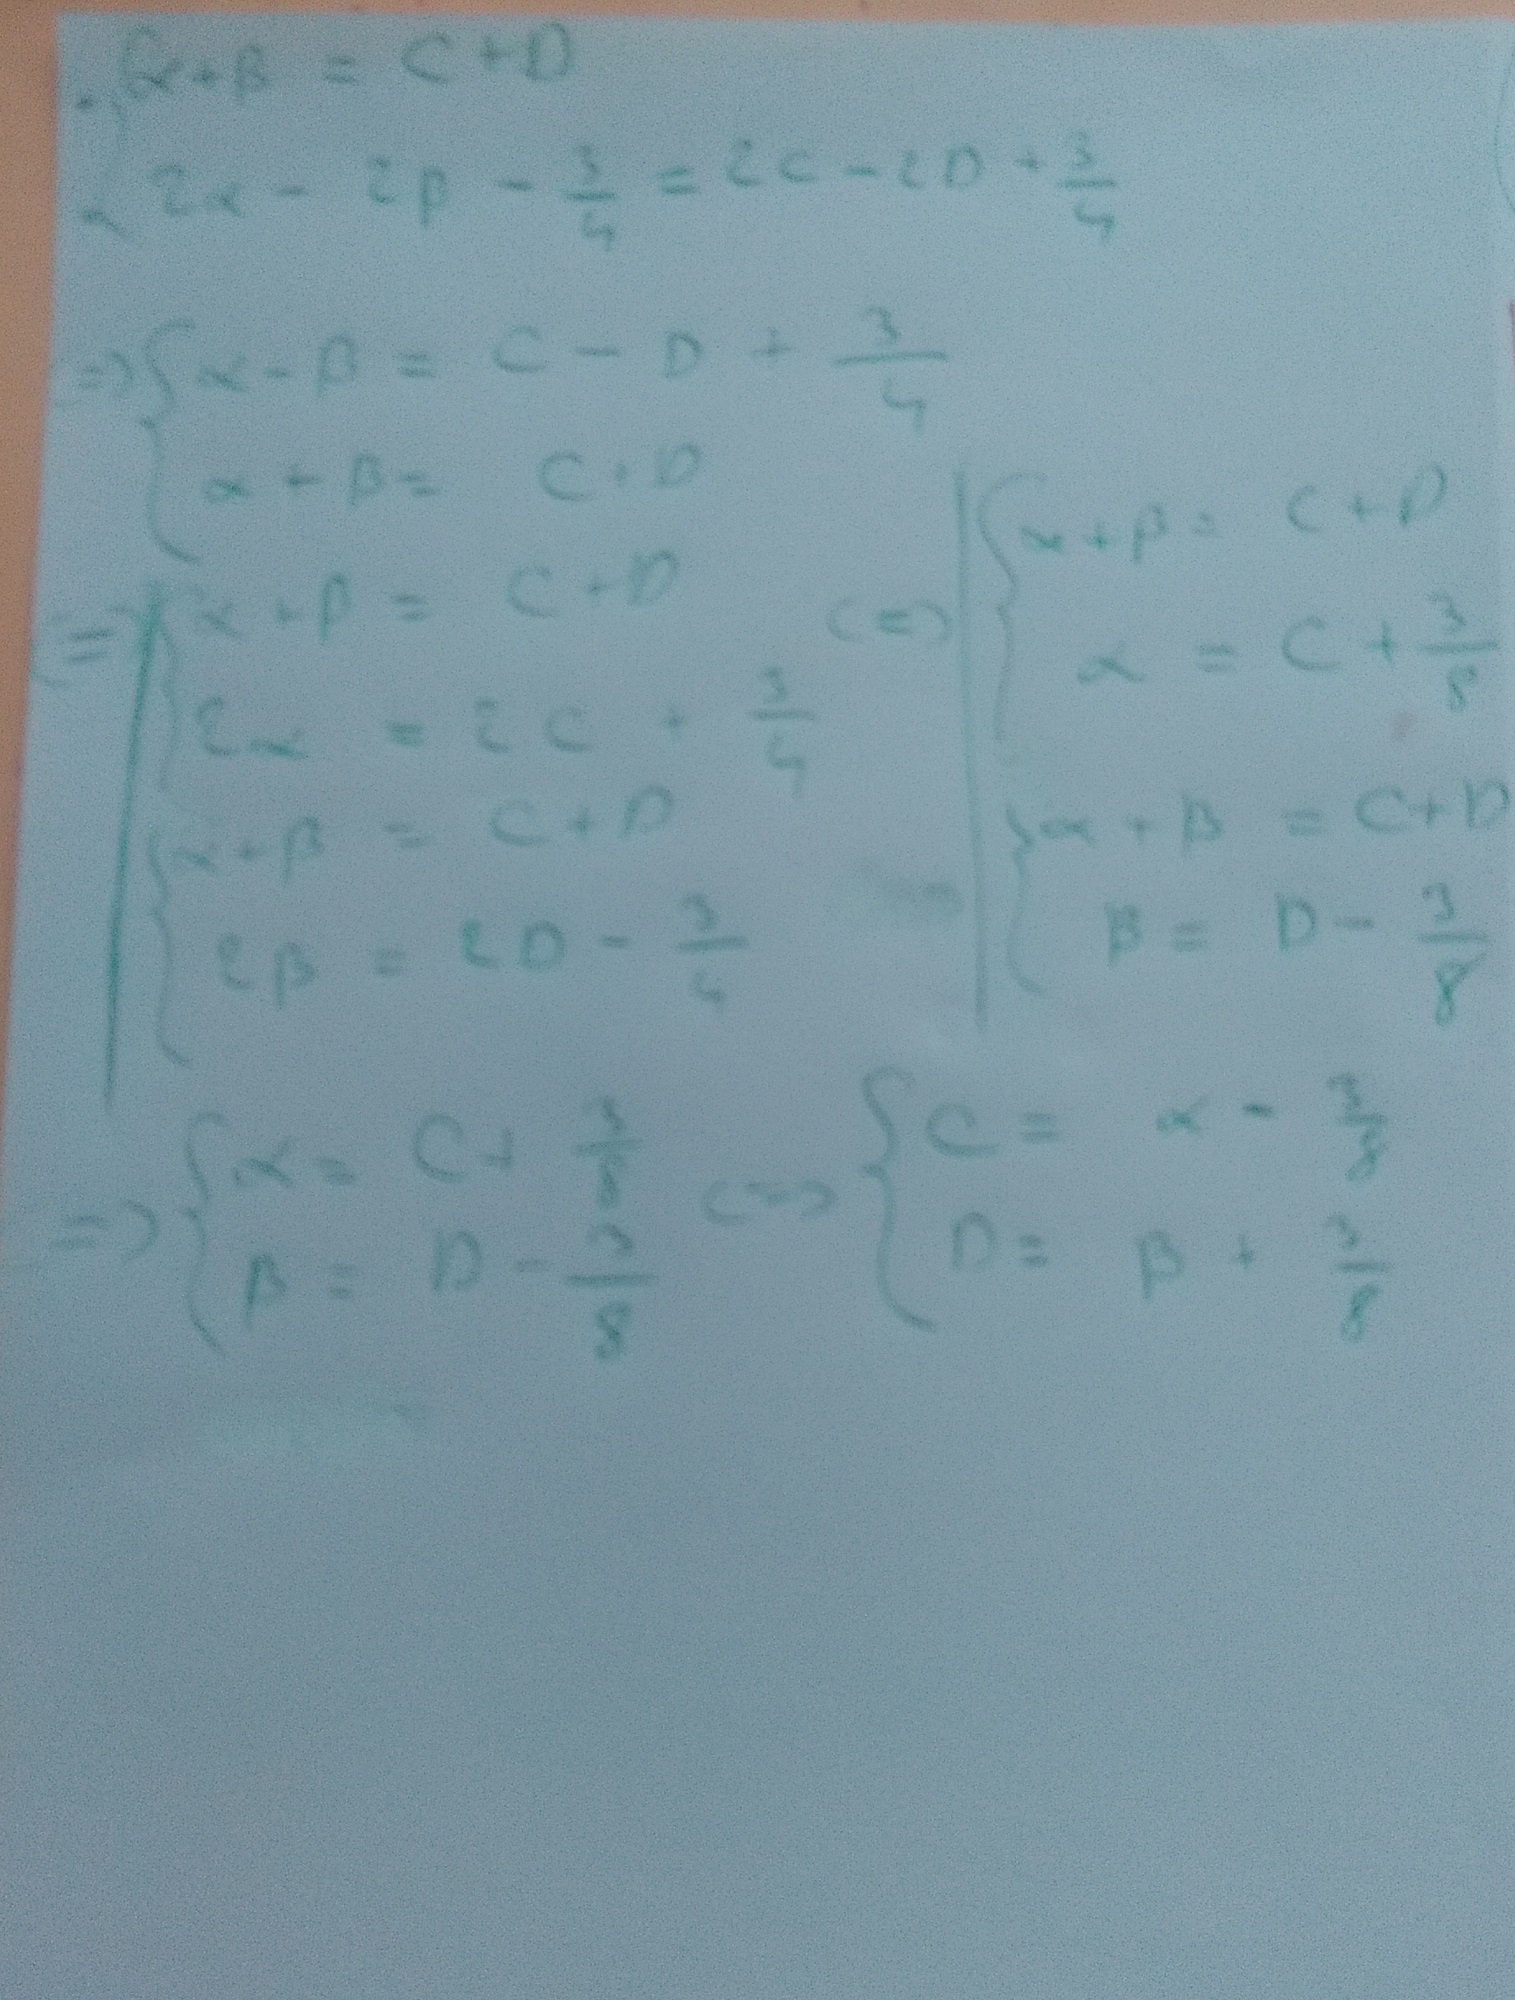 {α+β = C+D
2α - 2β - 3/4 = 2C - 2D + 3/4
=> {α - β = C - D + 3/4
α + β = C + D
<=> {α + β = C + D
2α = 2C + 3/4
{α + β = C + D
2β = 2D - 3/4
<=> {α + β = C + D
α = C + 3/8
{α + β = C + D
β = D - 3/8
=> {α = C + 3/8
β = D - 3/8
<=> {C = α - 3/8
D = β + 3/8